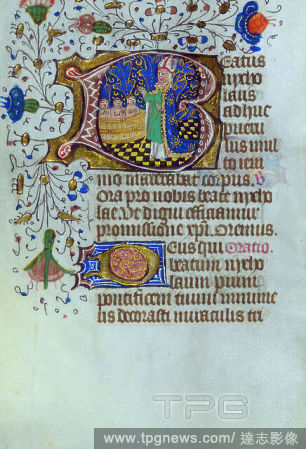 Beatus
nycho
laus
adhuc
puer mul
to ieiu
nio macerabat corpus. V
Ora pro nobis beate nycho
lae. Ut digni efficiamur
promissione xpi. Oremus.
Deus qui Oratio.
beatum nycho
laum pium
pontificem tuum innume
ris decorasti miraculis tri
TPG
www.tpgnews.com/達志影像